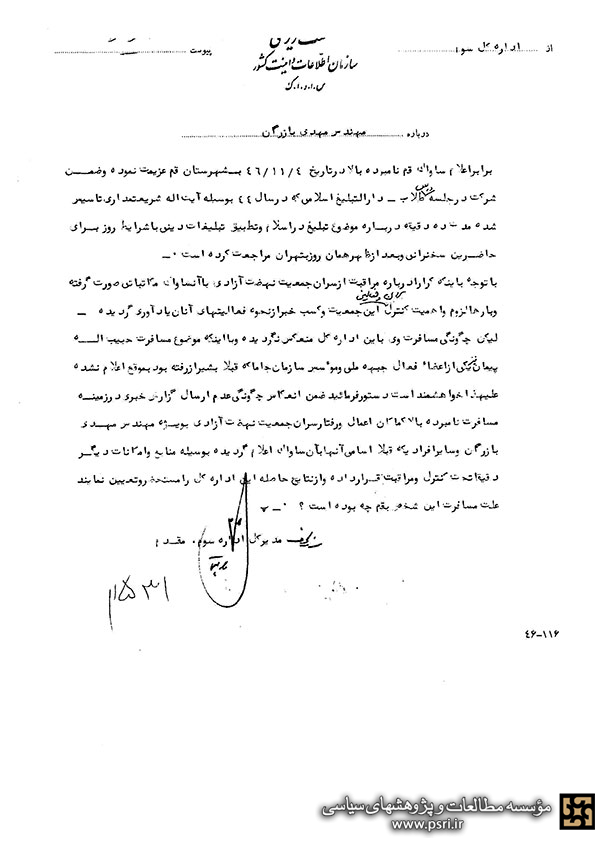 از اداره کل سوم
نخست وزیری
سازمان اطلاعات و امنیت کشور
س.ا.و.ا.ک
پیوست
درباره مهندس مهدی بازرگان
برابر اعلام ساواک قم نامبرده بالا در تاریخ ۴۶/۱۱/۴ بشهرستان قم عزیمت نموده و ضمن
شرکت در جلسه دارالتبلیغ اسلامی که در سال ۴۴ بوسیله آیت اله شریعتمداری تاسیس
شده مدت ده دقیقه درباره موضوع تبلیغ در اسلام و تطبیق تبلیغات دینی با شرایط روز برای
حاضرین سخنرانی و بعد از ظهر همان روز بتهران مراجعت کرده است ۰ـ
با توجه باینکه کرارا درباره مراقبت از سران جمعیت نهضت آزادی با آنساواک مکاتباتی صورت گرفته
و بارها لزوم و اهمیت کنترل این جمعیت و کسب خبر از نحوه فعالیتهای آنان یادآوری گردیده ـ
لیکن چگونگی مسافرت وی باین اداره کل منعکس نگردیده و با اینکه موضوع مسافرت حبیب الــه
پیمان یکی از اعضاء فعال جبهه ملی و موسس سازمان جاما که قبلا بشیراز رفته بود بموقع اعلام نشده
علیهذا خواهشمند است دستور فرمائید ضمن انعکاس چگونگی عدم ارسال گزارش خبری در زمینه
مسافرت نامبرده بالا کماکان اعمال و رفتار سران جمعیت نهضت آزادی بویژه مهندس مهدی
بازرگان و سایر افرادیکه قبلا اسامی آنها بآن ساواک اعلام گردیده بوسیله منابع و امکانات دیگر
دقیقا تحت کنترل و مراقبت قرار داده و از نتایج حاصله این اداره کل را مستحضر و تعیین نمایند
علت مسافرت این شخص بقم چه بوده است ؟ ۰ـ
مدیر کل اداره سوم. مقدم
۴۶-۱۱۶
مؤسسه مطالعات و پژوهشهای سیاسی
www.psri.ir